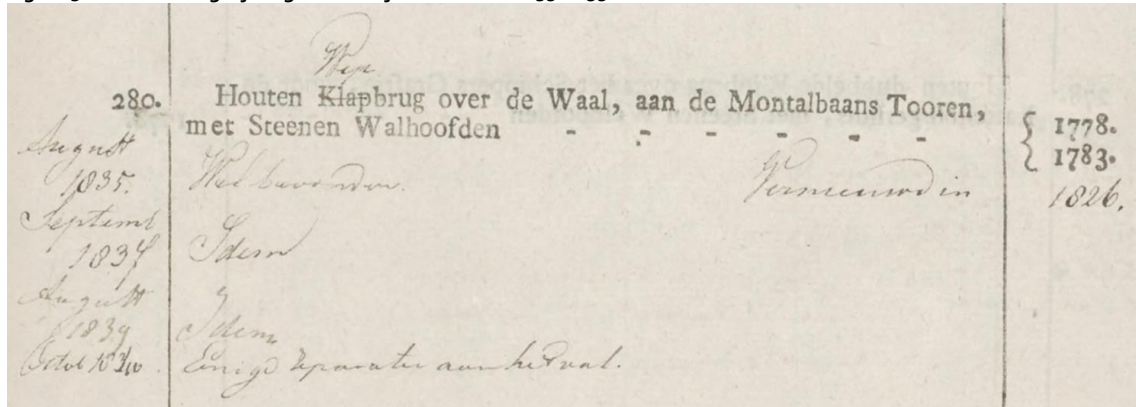 Wip
280. Houten Klapbrug over de Waal, aan de Montalbaans Tooren,
met Steenen Walhoofden - - - - - - { 1778.
1783.
August
1835. Wel bevonden. Vernieuwd in 1826.
Septemb
1837 Idem
August
1839 Idem
Octob 1840 Eenige reparatie aan het val.